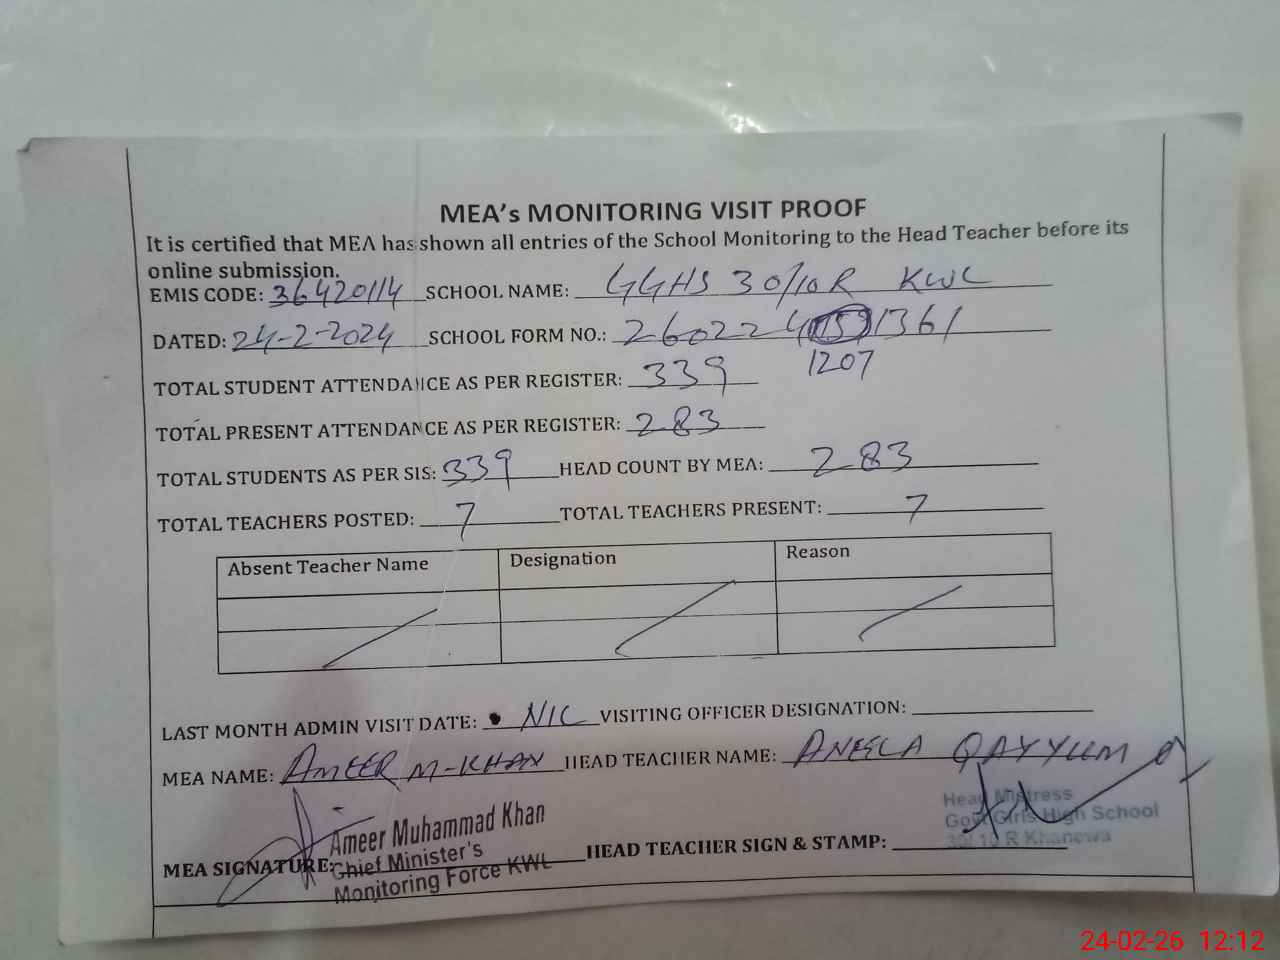 MEA's MONITORING VISIT PROOF
It is certified that MEA has shown all entries of the School Monitoring to the Head Teacher before its
online submission.
EMIS CODE: 36420114 SCHOOL NAME: GGHS 30/10R KWL
DATED: 24-2-2024 SCHOOL FORM NO.: 260224 1361
1207
TOTAL STUDENT ATTENDANCE AS PER REGISTER: 339
TOTAL PRESENT ATTENDANCE AS PER REGISTER: 283
TOTAL STUDENTS AS PER SIS: 339 HEAD COUNT BY MEA: 283
TOTAL TEACHERS POSTED: 7 TOTAL TEACHERS PRESENT: 7
Absent Teacher Name Designation Reason
LAST MONTH ADMIN VISIT DATE: NIL VISITING OFFICER DESIGNATION:
MEA NAME: AMEER M-KHAN HEAD TEACHER NAME: ANEELA QAYYUM
Ameer Muhammad Khan
Chief Minister's
Monitoring Force KWL
MEA SIGNATURE: HEAD TEACHER SIGN & STAMP:
Head Mistress
Govt Girls High School
30/10 R Khanewa
24-02-26 12:12